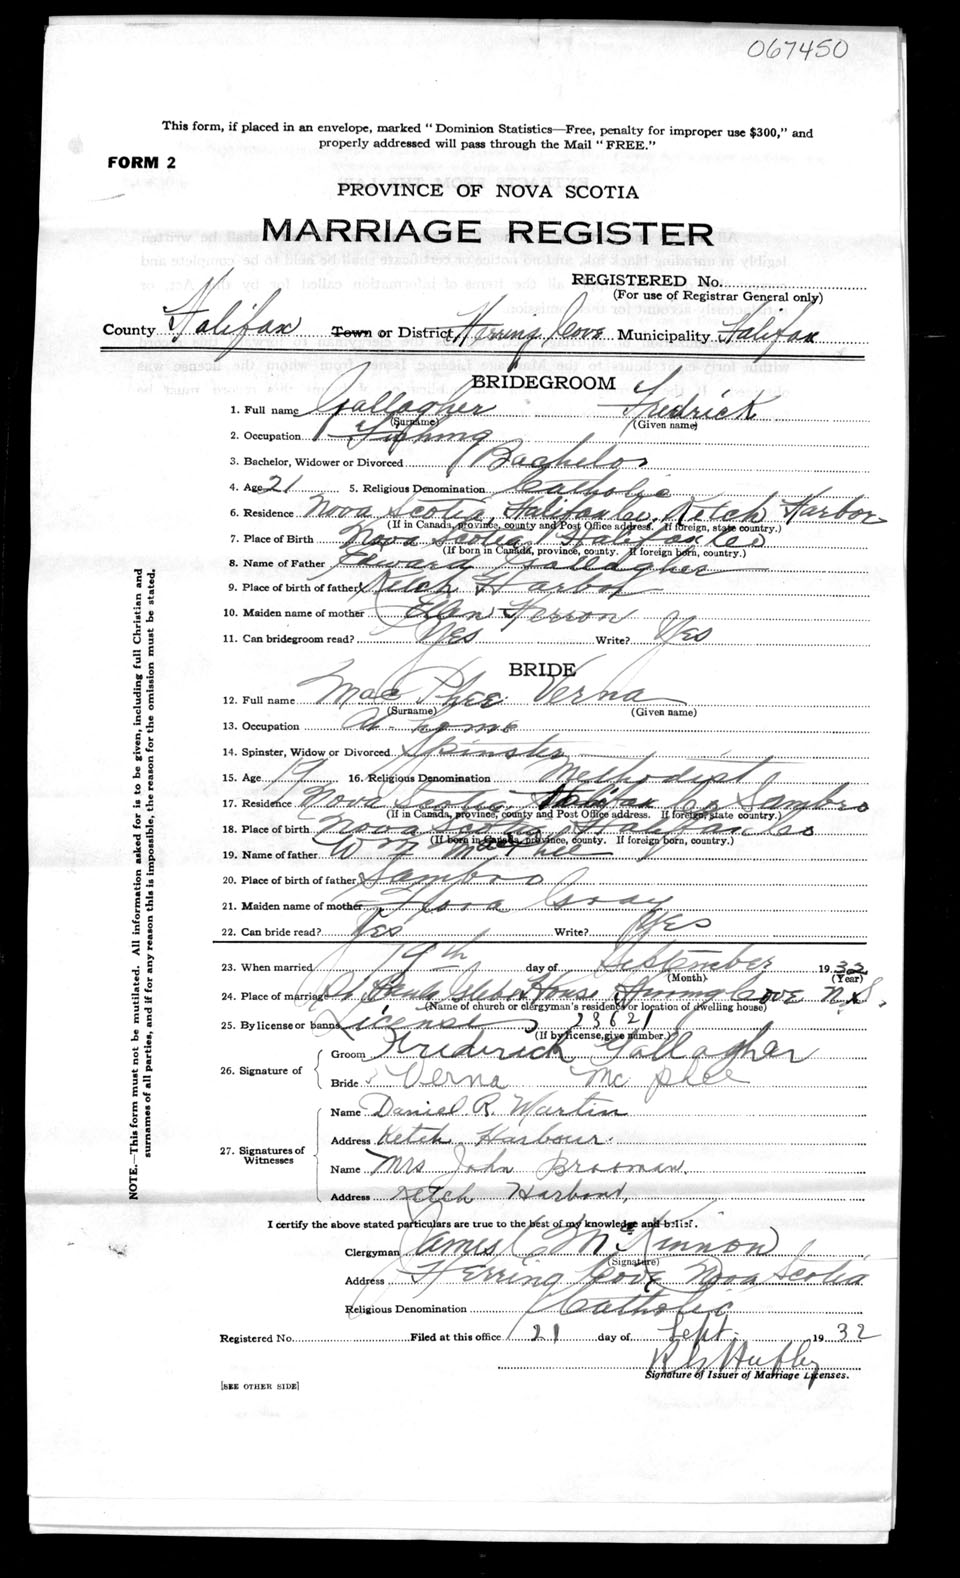 067450
This form, if placed in an envelope, marked "Dominion Statistics—Free, penalty for improper use $300," and
properly addressed will pass through the Mail "FREE."
FORM 2
PROVINCE OF NOVA SCOTIA
MARRIAGE REGISTER
REGISTERED No.
(For use of Registrar General only)
County Halifax Town or District Herring Cove Municipality Halifax
BRIDEGROOM
1. Full name Gallagher Fredrick
(Surname) (Given name)
2. Occupation Fishing
3. Bachelor, Widower or Divorced Bachelor
4. Age 21 5. Religious Denomination Catholic
6. Residence Nova Scotia Halifax Co. Ketch Harbor
(If in Canada, province, county and Post Office address. If foreign, state country.)
7. Place of Birth Nova Scotia Halifax Co
(If born in Canada, province, county. If foreign born, country.)
8. Name of Father Edward Gallagher
9. Place of birth of father Ketch Harbor
10. Maiden name of mother Ellen Ferron
11. Can bridegroom read? Yes Write? Yes
BRIDE
12. Full name Mac Phee Verna
(Surname) (Given name)
13. Occupation At home
14. Spinster, Widow or Divorced Spinster
15. Age 19 16. Religious Denomination Methodist
17. Residence Nova Scotia Halifax Co Sambro
(If in Canada, province, county and Post Office address. If foreign, state country.)
18. Place of birth Nova Scotia Halifax Co
(If born in Canada, province, county. If foreign born, country.)
19. Name of father Wm MacPhee
20. Place of birth of father Sambro
21. Maiden name of mother Flora Gray
22. Can bride read? Yes Write? Yes
23. When married 19th day of September 1932
(Month) (Year)
24. Place of marriage St Pauls Glebe House Herring Cove N.S.
(Name of church or clergyman's residence or location of dwelling house)
25. By license or banns License 23621
(If by license, give number.)
26. Signature of
Groom Frederick Gallagher
Bride Verna Mc phee
27. Signatures of Witnesses
Name Daniel R. Martin
Address Ketch Harbour.
Name Mrs John Brooman.
Address Ketch Harbour,
I certify the above stated particulars are true to the best of my knowledge and belief.
Clergyman James C McKinnon
(Signature)
Address Herring Cove Nova Scotia
Religious Denomination Catholic
Registered No. Filed at this office 21 day of Sept. 1932
Signature of Issuer of Marriage Licenses.
[SEE OTHER SIDE]
NOTE.—This form must not be mutilated. All information asked for is to be given, including full Christian and
surnames of all parties, and if for any reason this is impossible, the reason for the omission must be stated.